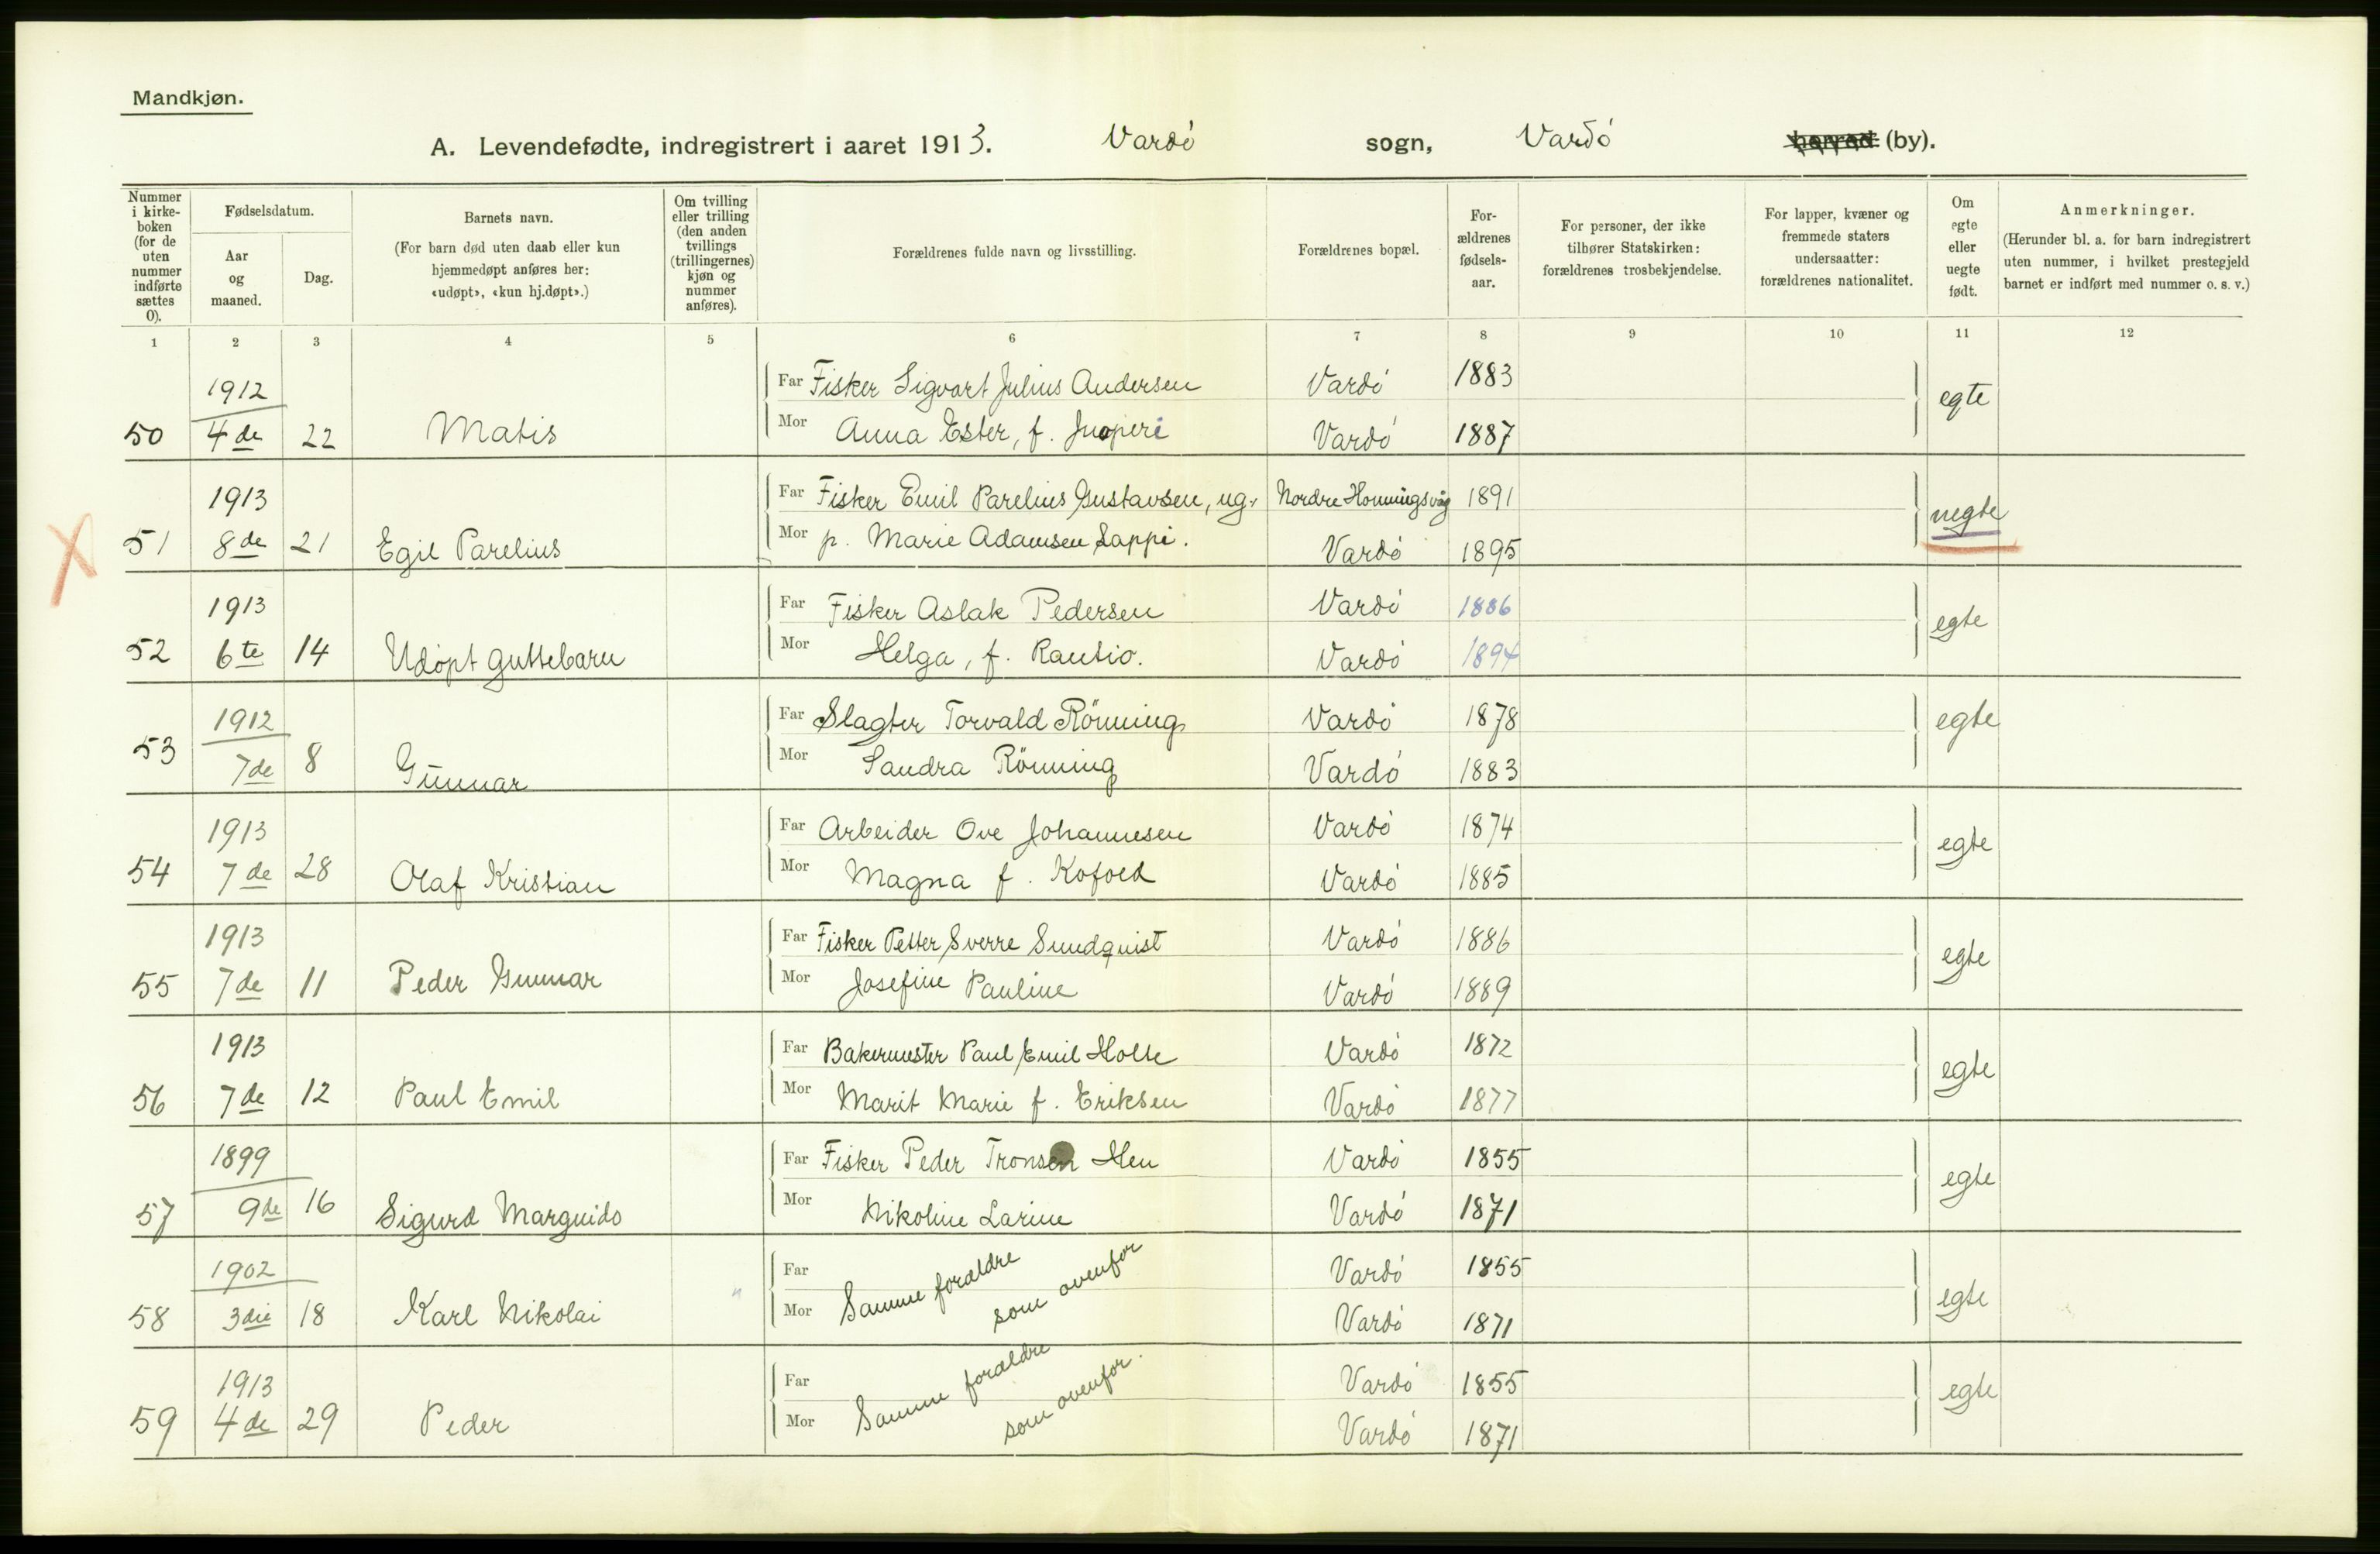 Mandkjøn.
A. Levendefødte, indregistrert i aaret 1913. Vardö sogn, Vardö herred (by).
Nummer i kirke-boken (for de uten nummer indførte sættes 0).
Fødselsdatum.
Aar og maaned.
Dag.
Barnets navn.
(For barn død uten daab eller kun hjemmedøpt anføres her: «udøpt», «kun hj.døpt».)
Om tvilling eller trilling (den anden tvillings (trillingernes) kjøn og nummer anføres).
Forældrenes fulde navn og livsstilling.
Forældrenes bopæl.
For-ældrenes fødsels-aar.
For personer, der ikke tilhører Statskirken: forældrenes trosbekjendelse.
For lapper, kvæner og fremmede staters undersaatter: forældrenes nationalitet.
Om egte eller uegte født.
Anmerkninger.
(Herunder bl. a. for barn indregistrert uten nummer, i hvilket prestegjeld barnet er indført med nummer o. s. v.)
1 2 3 4 5 6 7 8 9 10 11 12
1912 Far Fisker Sigvart Julius Andersen Vardö 1883 egte
50 4de 22 Matis Mor Anna Ester, f. Vardö 1887
1913 Far Fisker Emil Parelius Gustavsen, ug. Nordre Honningsvåg 1891 uegte
51 8de 21 Egil Parelius Mor p. Marie Adamsen Lappi. Vardö 1895
1913 Far Fisker Aslak Pedersen Vardö 1886 egte
52 6te 14 Udöpt guttebarn Mor Helga, f. Rautio. Vardö 1894
1912 Far Slagter Torvald Rönning Vardö 1878 egte
53 7de 8 Gunnar Mor Sandra Rönning Vardö 1883
1913 Far Arbeider Ove Johannesen Vardö 1874 egte
54 7de 28 Olaf Kristian Mor Magna f. Kofoed Vardö 1885
1913 Far Fisker Petter Sverre Sundquist Vardö 1886 egte
55 7de 11 Peder Gunnar Mor Josefine Pauline Vardö 1889
1913 Far Bakermester Paul Emil Holte Vardö 1872 egte
56 7de 12 Paul Emil Mor Marit Marie f. Eriksen Vardö 1877
1899 Far Fisker Peder Tronsen Hen Vardö 1855 egte
57 9de 16 Sigurd Marguido Mor Nikoline Larine Vardö 1871
1902 Far Samme forældre Vardö 1855 egte
58 3die 18 Karl Nikolai Mor som ovenfor Vardö 1871
1913 Far Samme forældre Vardö 1855 egte
59 4de 29 Peder Mor som ovenfor. Vardö 1871